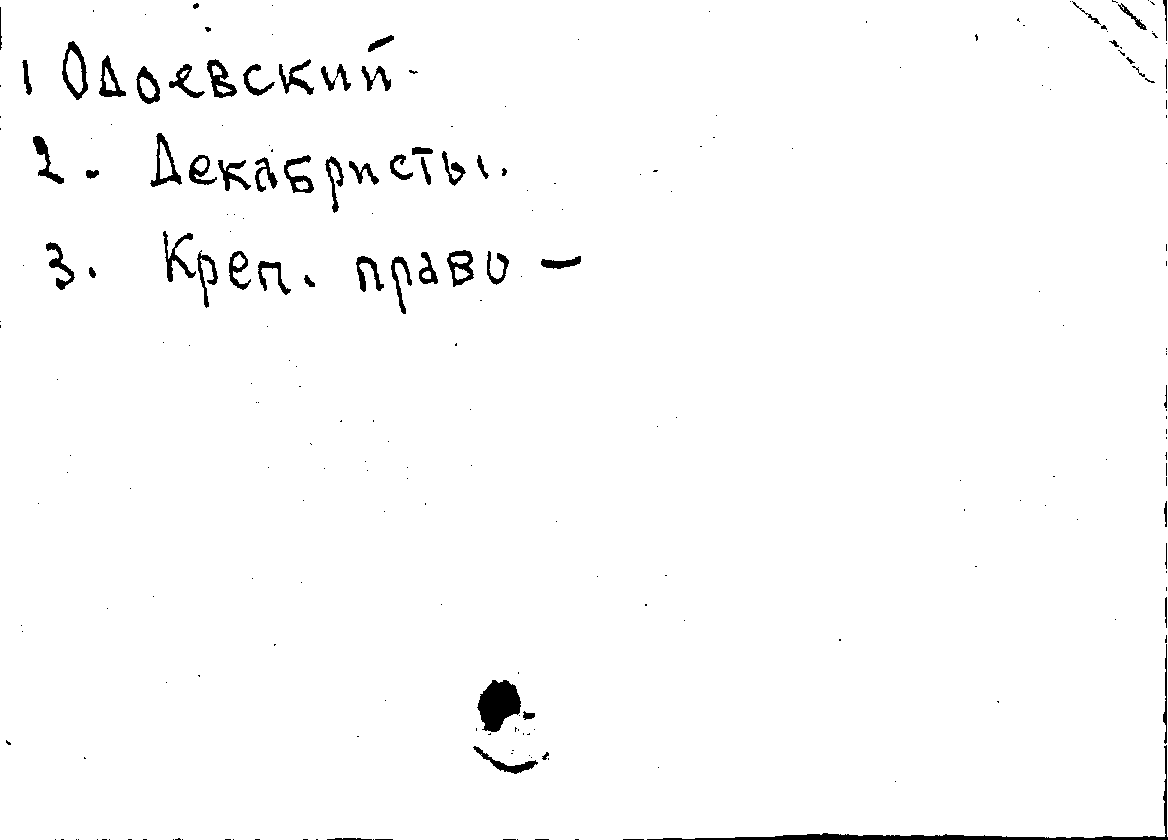 1 Одоевский -
2. Декабристы.
3. Креп. право —